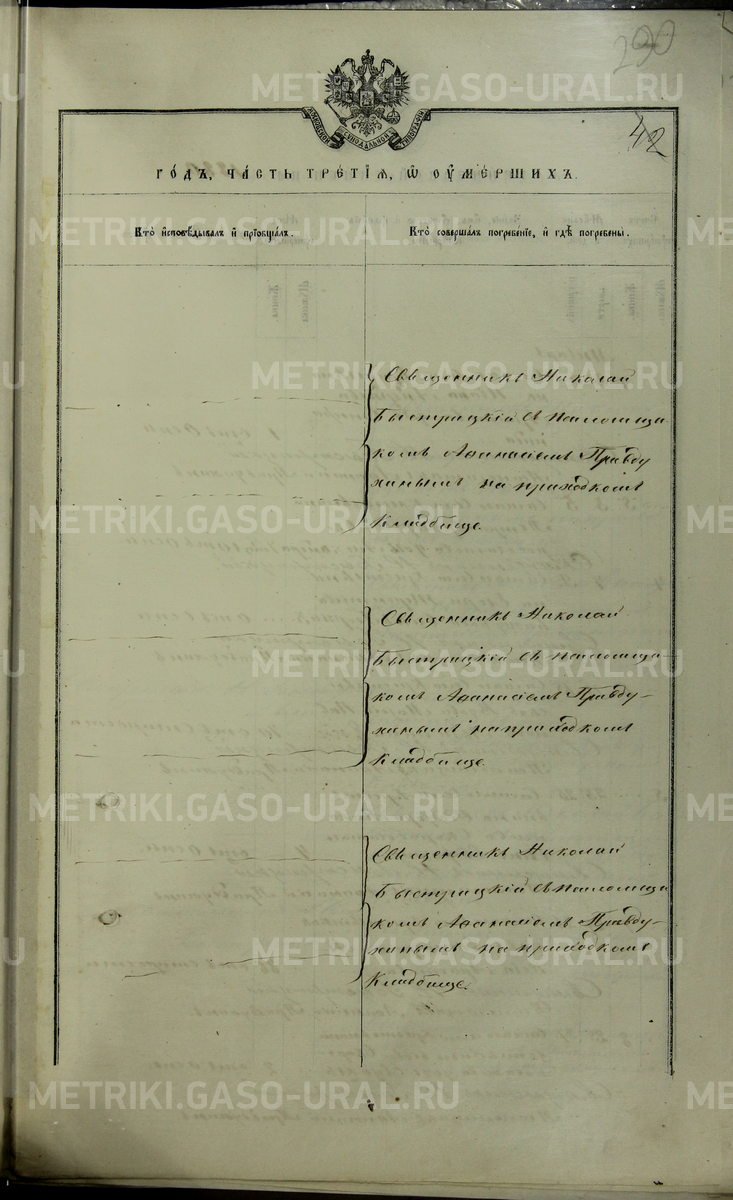 290
42
МОСКОВСКОЙ СѴНОДАЛЬНОЙ ТИПОГРАФІИ
ГОДЪ, ЧАСТЬ ТРЕТІѦ, Ѿ ОУМЕРШИХЪ.
Кто исповѣдывалъ и пріобщалъ.
Кто совершалъ погребеніе, и гдѣ погребены.
Священникъ Николай
Быстрицкій съ псаломщи
комъ Аѳанасіемъ Правду
хинымъ на приходскомъ
кладбище.
Священникъ Николай
Быстрицкій съ псаломщи
комъ Аѳанасіемъ Правду-
хинымъ на приходскомъ
кладбище.
Священникъ Николай
Быстрицкій съ псаломщи
комъ Аѳанасіемъ Правду-
хинымъ на приходскомъ
кладбище.
METRIKI.GASO-URAL.RU